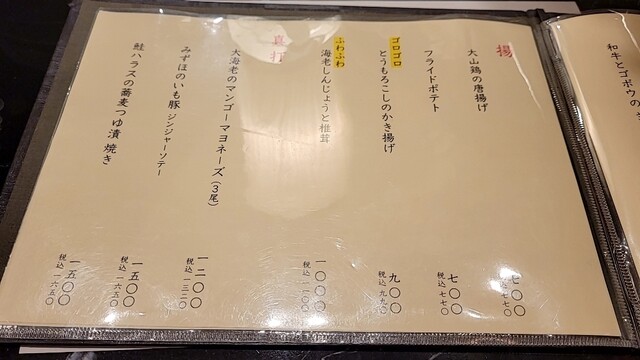 揚
大山鶏の唐揚げ
七〇〇
税込 七七〇
フライドポテト
七〇〇
税込 七七〇
ゴロゴロ
とうもろこしのかき揚げ
九〇〇
税込 九九〇
ふわふわ
海老しんじょうと椎茸
一〇〇〇
税込 一一〇〇
真打
大海老のマンゴーマヨネーズ(3尾)
一二〇〇
税込 一三二〇
みずほのいも豚 ジンジャーソテー
一五〇〇
税込 一六五〇
鮭ハラスの蕎麦つゆ漬焼き
一五〇〇
税込 一六五〇
和牛とゴボウの